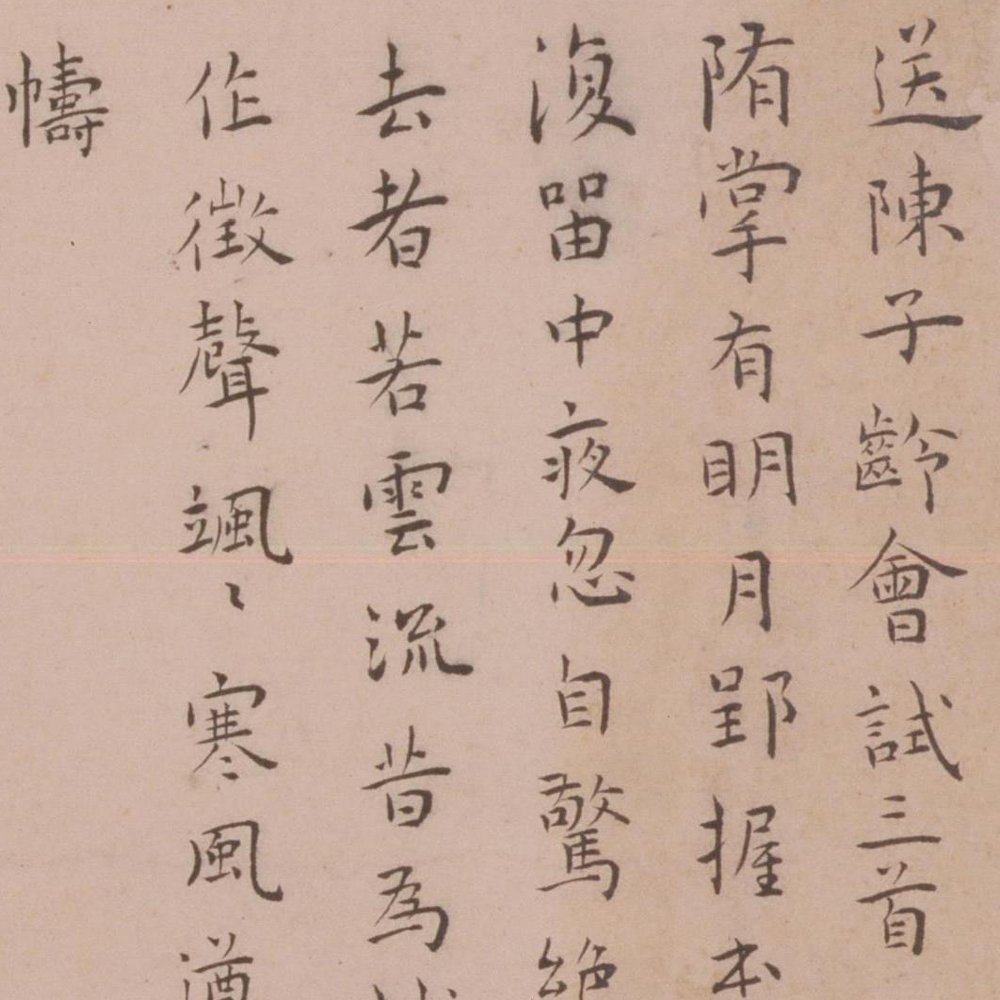 送陳子齡會試三首
隋掌有明月郢握本
復留中夜忽自驚絕
去者若雲流昔為
作徵聲颯〻寒風
幬